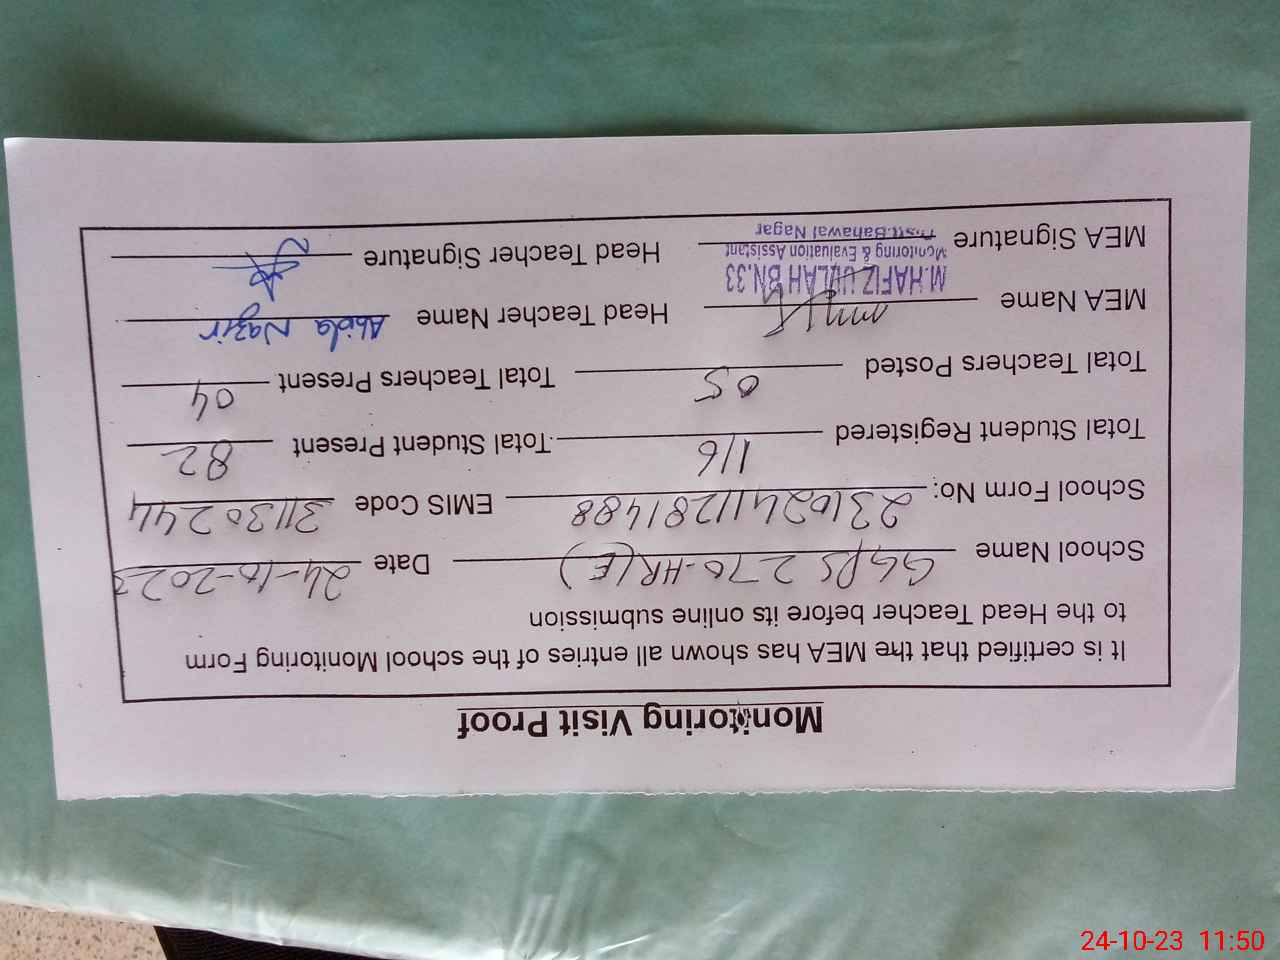 Monitoring Visit Proof
It is certified that the MEA has shown all entries of the school Monitoring Form
to the Head Teacher before its online submission
School Name GGPS 270-HR(E) Date 24-10-2023
School Form No: 231024111281488 EMIS Code 31130244
Total Student Registered 116 Total Student Present 82
Total Teachers Posted 05 Total Teachers Present 04
MEA Name Head Teacher Name Abida Nazir
M.HAFIZ ULLAH BN.33
Monitoring & Evaluation Assistant
MEA Signature Distt.Bahawal Nagar Head Teacher Signature
24-10-23 11:50